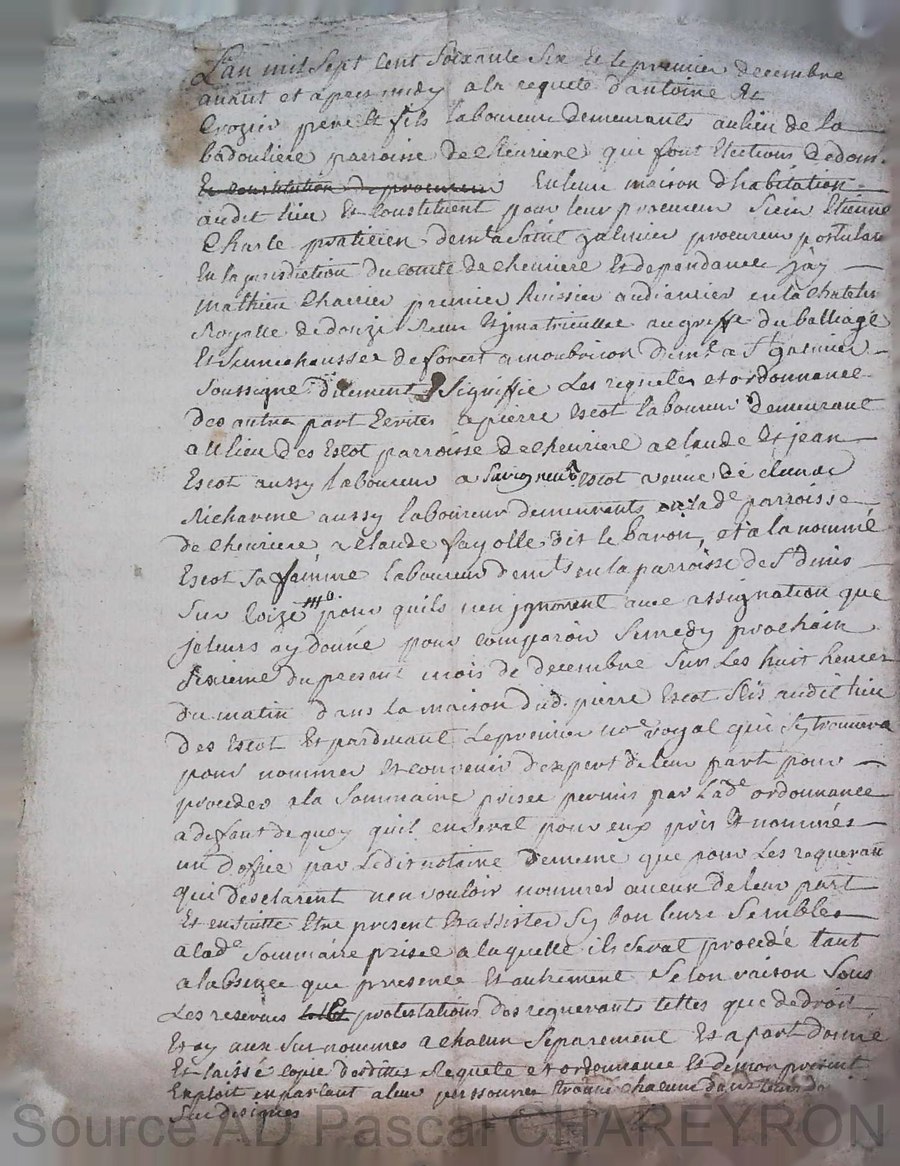 L'an mil sept cent soixante six et le premier decembre
avant et apres midy a la requete d'antoine et
Crozier pere et fils laboureur demeurants au lieu de la
badouliere parroisse de cheuriere qui font Elections de dom.
Et constitution de procureur En leur maison d'habitation
audit lieu Et Constituent pour leur procureur Sieur Etienne
Charle praticien demt a Saint galmier procureur postulant
En la jurisdiction du comté de cheuriere Et dependance jay
mathieu Charrier premier huissier audiancier en la Chatelnie
Royalle de donzi Reçu Et jmatricullée au greffe du balliage
Et Sennechaussée de forest a monbrison demt a St galmier
Soussigné duement Signiffie Les requete et ordonnance
des autre part Ecrites a pierre Escot laboureur demeurant
au lieu des Escot parroisse de cheuriere a claude Et jean
Escot aussy laboureur a Escot veuve de claude
Richarme aussy laboureur demeurants lade parroisse
de cheuriere a claude fayolle dit le baron, et a la nommé
Escot Sa famme laboureur demts en la parroisse de St denis
Sur Coize pour quils nen jgnorent avec assignation que
je leurs ay donné pour comparoir Samedy prochain
Sixieme du present mois de decembre Sur Les huit heures
du matin dans la maison dud. pierre Escot Sis audit lieu
des Escot Et pardevant Le premier nore royal qui Sy trouvera
pour nommer et convenir dexpert de leur part pour
proceder a la Sommaire prisee permis par Lade ordonnance
a deffaut de quoy quil en Serat pour eux pris Et nommés
un doffice par Ledit notaire de meme que pour Les requerant
qui desclarent nen vouloir nommer aucun de leur part
Et en suitte Etre present Et assister Sy bon leurs Semblee
a lade Sommaire prisee a laquelle il Serat procedé tant
a labsence que presence Et autrement Selon raison Sous
Les reserves protestations des requerants telles que de droit
Et ay aux Sus nommés a chacun Separement Et a part donné
Et laissé copie desdittes Requete et ordonnance Et de mon present
Exploit en parlant a leur personnes trouvé chacun dans leur do
Sus designes
Source AD Pascal CHAREYRON